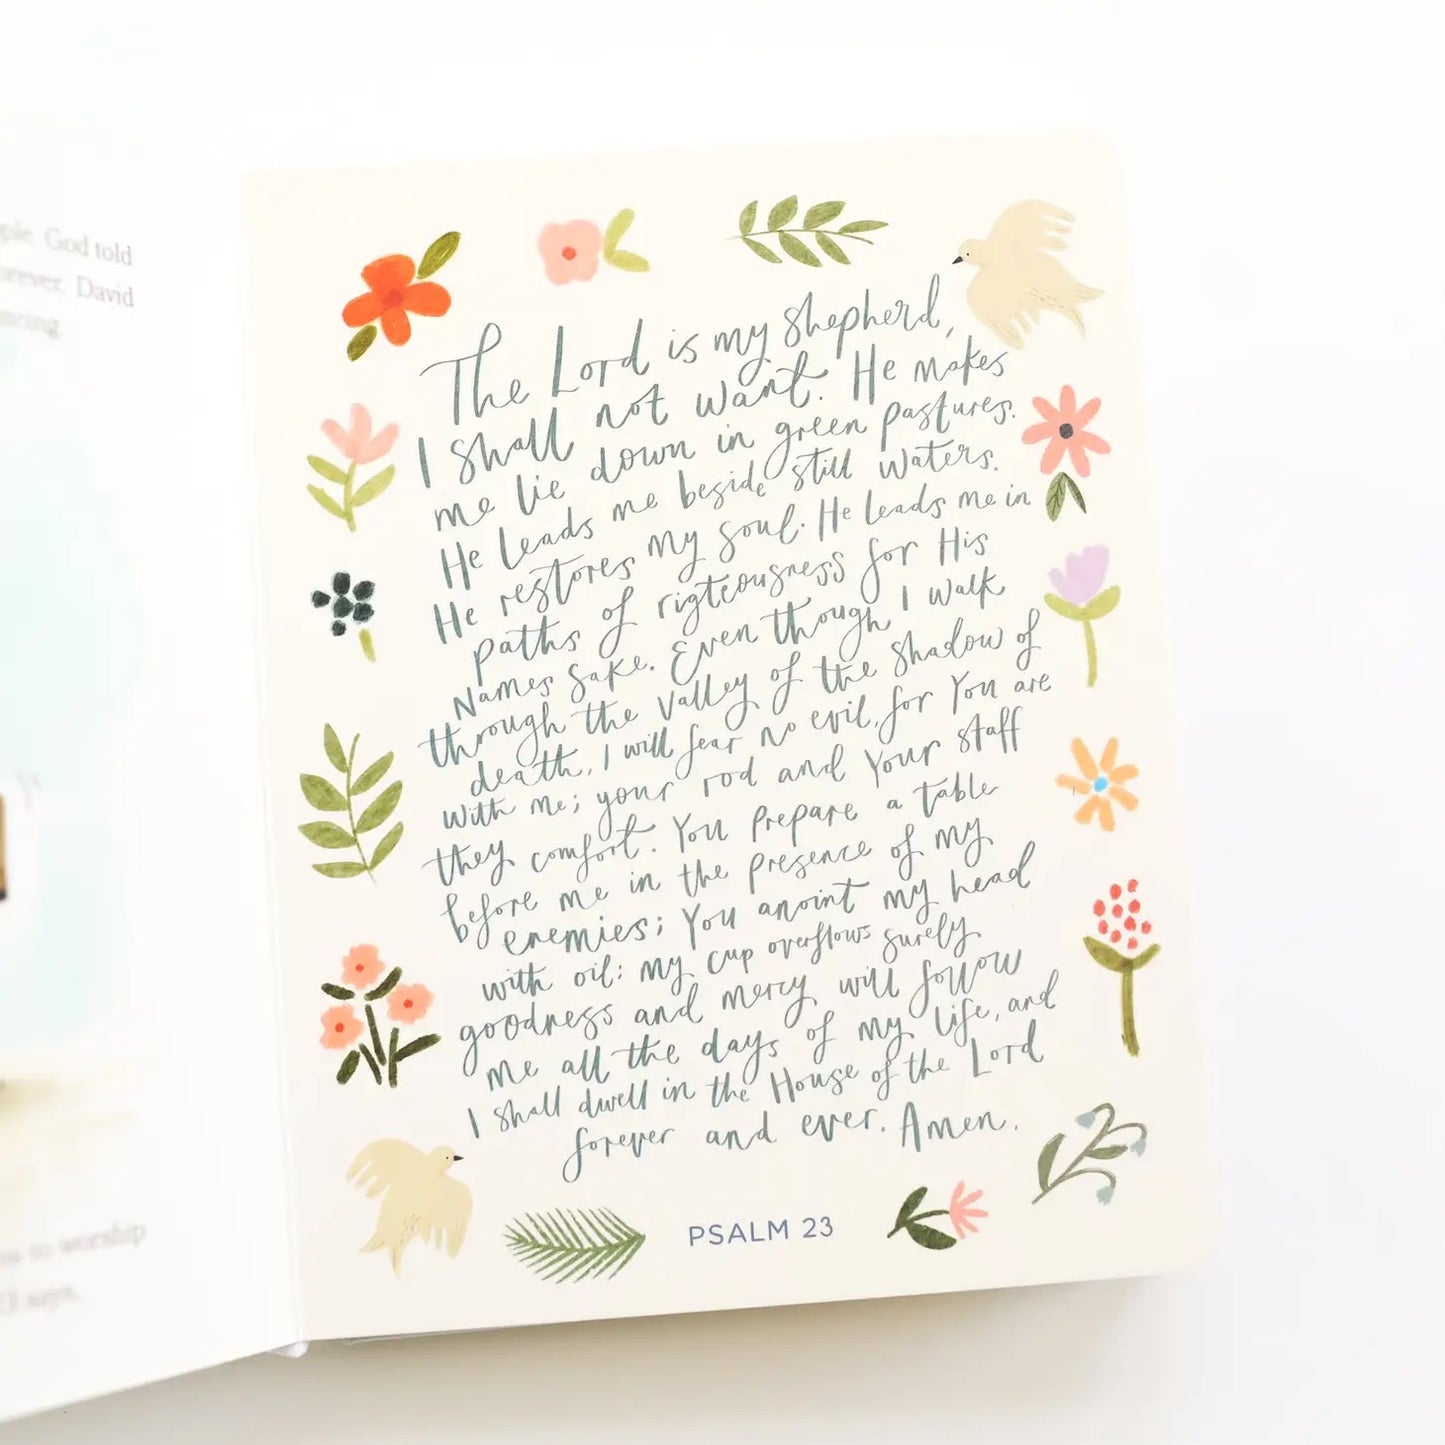 ple. God told
orever. David
ncing.
The Lord is my shepherd,
I shall not want. He makes
me lie down in green pastures.
He leads me beside still waters.
He restores my soul. He leads me in
paths of rigteousness for His
Names sake. Even though I walk
through the valley of the shadow of
death, I will fear no evil, for You are
with me; your rod and Your staff
they comfort. You prepare a table
before me in the presence of my
enemies; You anoint my head
with oil; my cup overflows surely
goodness and mercy will follow
me all the days of my life, and
I shall dwell in the House of the Lord
forever and ever. Amen.
PSALM 23
to worship
says,